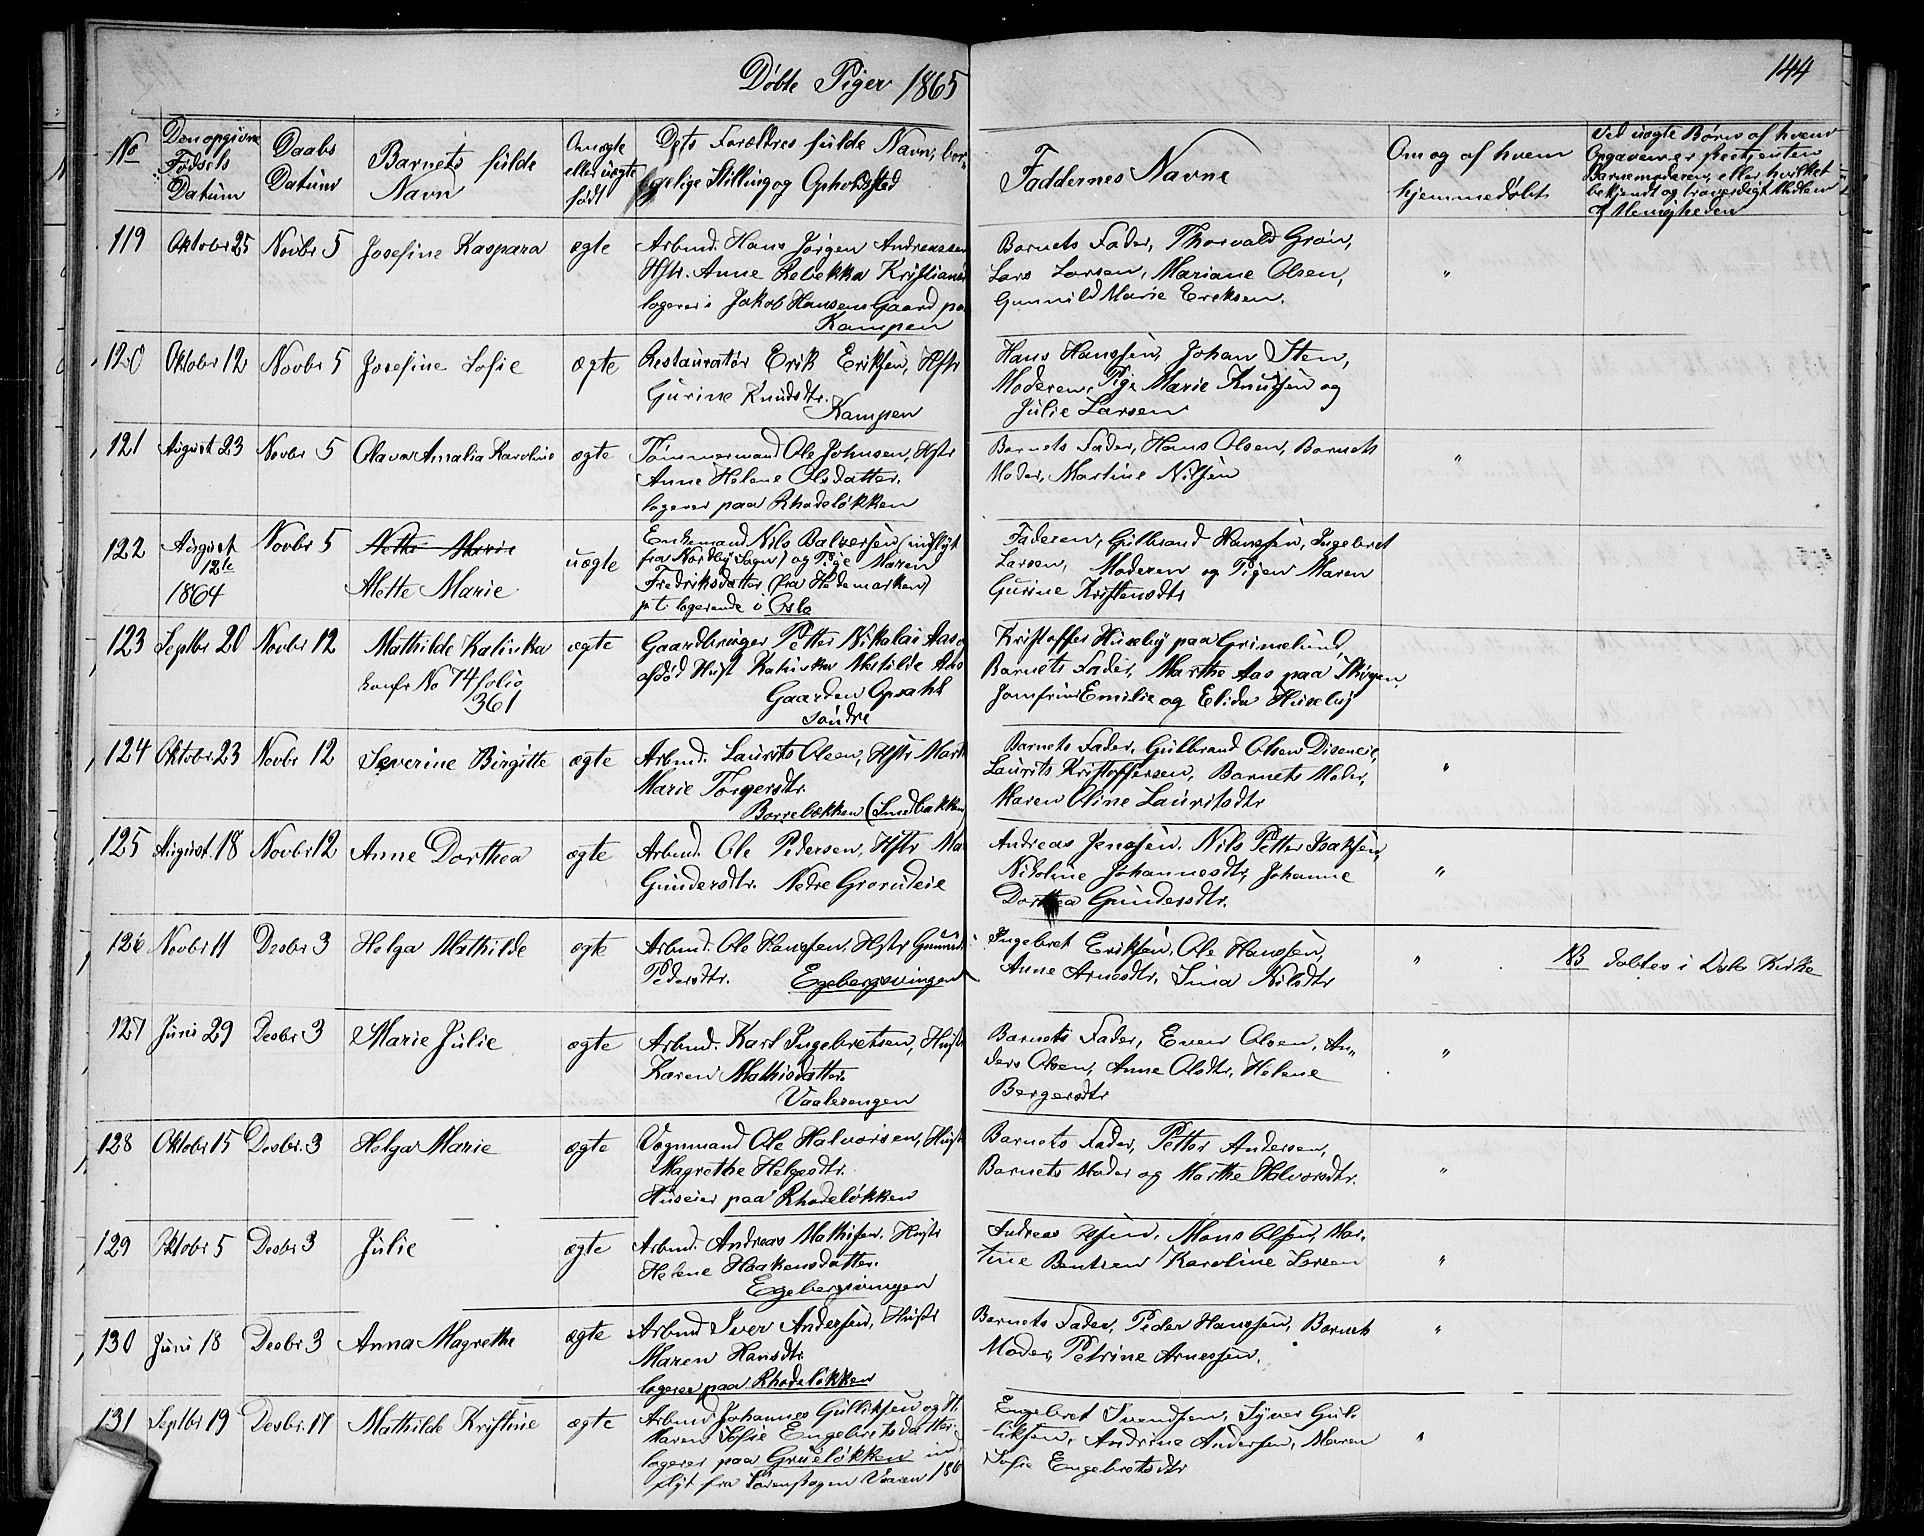 Døbte Piger 1865
144
No
Den opgivne Fødsels Datum
Daabs Datum
Barnets fulde Navn
Om ægte eller uægte født
Dets Forældres fulde Navn, borgelige Stilling og Opholdsted
Faddernes Navne
Om og af hvem hjemmedøbt
Ved uægte Børn af hvem Opgaven er
Barnemoderen, eller hvilket
bekjendt og troværdigt Medlem
af Menigheden
119 Oktobr 25 Novbr 5 Josefine Kaspara ægte Arbmd. Hans Jørgen Andreassen
Hstr. Anne Rebekka Kristians
logerer i Jakob Hansens Gaard paa
Kampen
Barnets Fader, Thorvald Grøn,
Lars Larsen, Mariane Olsen,
Gunnild Marie Ericksen. "
120 Oktobr 12 Novbr 5 Josefine Sofie ægte Restauratør Erik Eriksen, Hstr
Gurine Knudsdtr.
Kampen
Hans Hanssen, Johan Sten,
Moderen, Pige Marie Knutsen og
Julie Larsen
121 August 23 Novbr 5 Olava Amalia Karoline ægte Tømmermand Ole Johnsen, Hstr
Anne Helene Olsdatter.
logerer paa Rhodeløkken
Barnets Fader, Hans Olsen, Barnets
Moder, Martine Nilsen "
122 August 12te 1864 Novbr 5 Nette Marie
Alette Marie uægte Enkemand Nils Balzersen (indflyt
fra Nordby Sogn) og Pige Maren
Fredriksdatter (fra Hedemarken)
p.t. logerende i Oslo
Faderen, Gulbrand Hanssen, Ingebret
Larsen, Moderen og Pigen Maren
Gurine Kristensdtr
123 Septbr 20 Novbr 12 Mathilde Katinka
konfr No 74 folio
361 ægte Gaardbruger Petter Nikolai Aas og
afdød Hust Katinka Matilde Aas
Gaarden Opsahl
søndre
Kristoffer Huseby paa Grimelund,
Barnets Fader, Marthe Aas paa
Jomfru Emilie og Elida Huseby
124 Oktobr 23 Novbr 12 Severine Birgitte ægte Arbmd. Laurits Olsen, Hstr Marth
Marie Torgersdtr.
Borrebækken (Smedbakken
Barnets Fader, Gulbrand Olsen Diseneie,
Laurits Kristoffersen, Barnets Moder,
Maren Oline Lauritsdtr "
125 August 18 Novbr 12 Anne Dorthea ægte Arbmd. Ole Pedersen, Hstr Ma
Gundersdtr. Nedre Grorudeie
Andreas Jenssen, Nils Petter Isaksen,
Nikoline Johannesdtr, Johanne
Dorthea Gundersdtr. "
126 Novbr 11 Desbr 3 Helga Mathilde ægte Arbmd. Ole Hanssen, Hstr Gunnil
Pedersdtr. Egebergsvingen
Ingebret Eriksen, Ole Hanssen,
Anne Arnesdtr, Sina Nilsdtr " NB døbtes i Oslo Kirke
127 Juni 29 Desbr 3 Marie Julie ægte Arbmd. Karl Ingebretsen, Hustr
Karen Mathisdatter.
Vaalerengen
Barnets Fader, Even Olsen, An-
ders Olsen, Anne Olsdtr, Helene
Bergersdtr "
128 Oktobr 15 Desbr. 3 Helga Marie ægte Vognmand Ole Halvorsen, Hust
Magrethe Helgesdtr.
Huseier paa Rhodeløkken
Barnets Fader, Petter Andersen,
Barnets Moder og Marthe Halvorsdtr. "
129 Oktobr 5 Desbr 3 Julie ægte Arbmd. Andreas Mathisen, Hustr
Helene Haakensdatter.
Egebergsvingen
Andreas Olsen, Mons Olsen, Mar-
tine Bentsen Karoline Larsen "
130 Juni 18 Desbr 3 Anna Magrethe ægte Arbmd Iver Andersen, Hustr
Maren Hansdtr.
logerer paa Rhodeløkken
Barnets Fader, Peder Hanssen, Barnets
Moder, Petrine Arnessen. "
131 Septbr 19 Desbr. 17 Mathilde Kristine ægte Arbmd. Johannes Gulliksen og H.
Maren Sofie Engebretsdatter
logerer paa Grueløkken ind
flyt fra Vaaren 186
Engebret Svendsen, Syver Gul-
liksen, Andrine Andersen, Maren
Sofie Engebretsdtr "